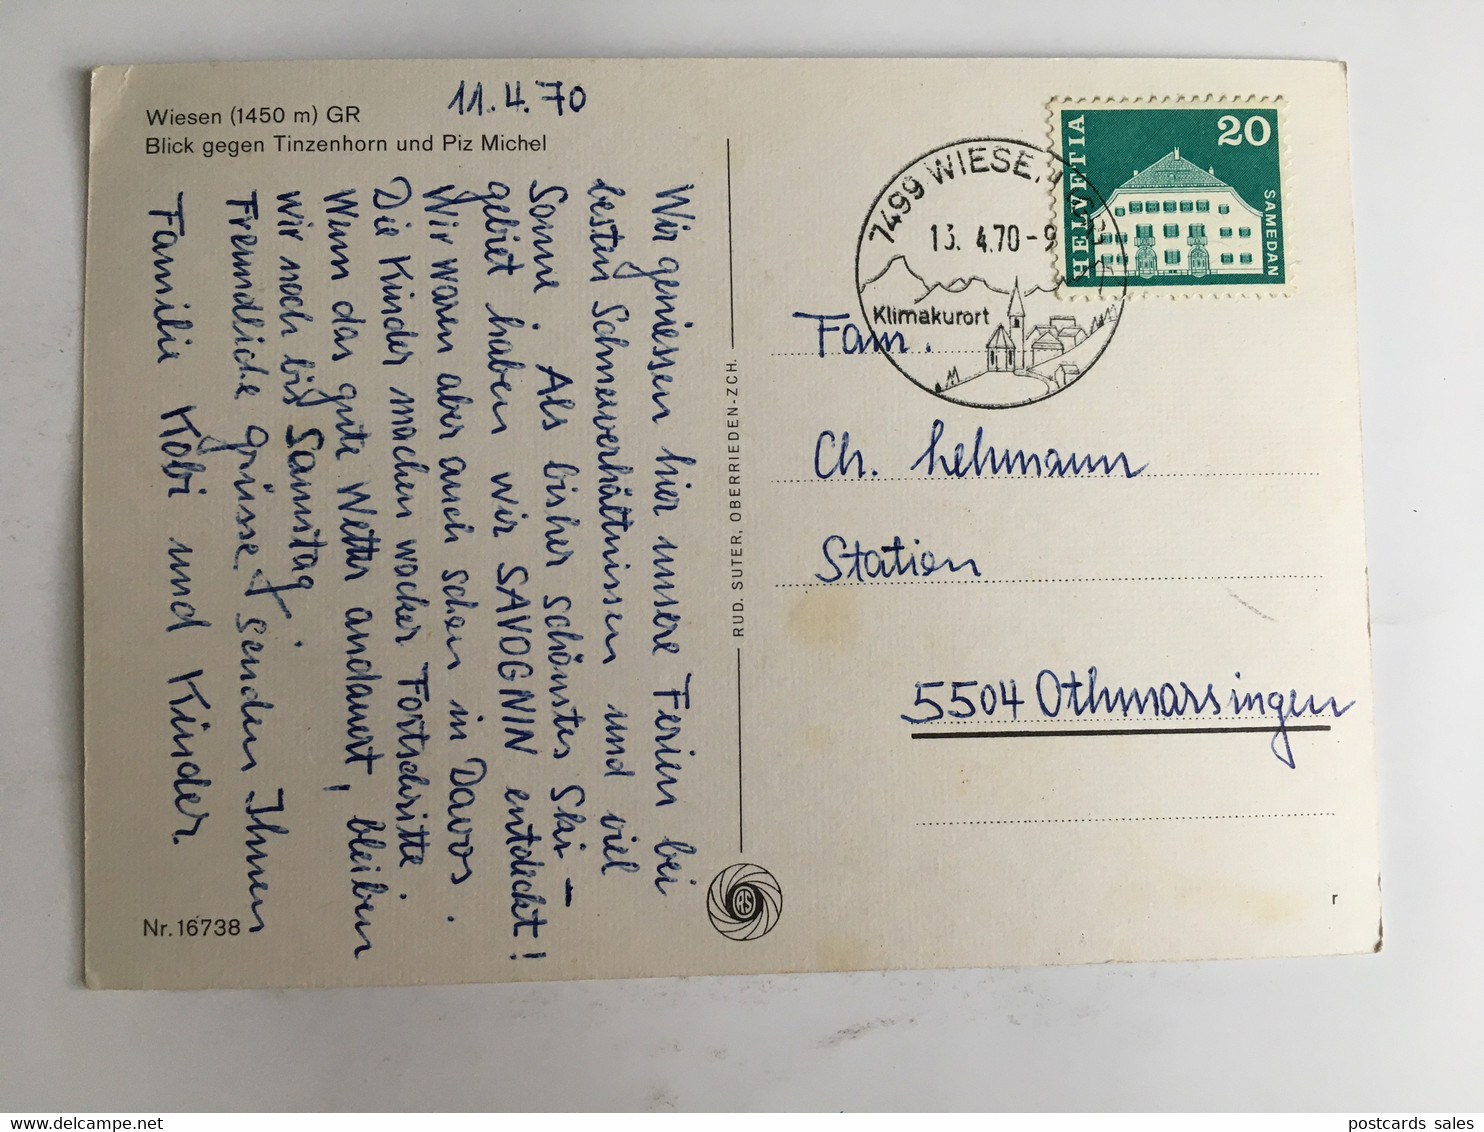 Wiesen (1450 m) GR
Blick gegen Tinzenhorn und Piz Michel
11.4.70
Wir geniessen hier unsere Ferien bei
besten Schneeverhältnissen und viel
Sonne. Als bisher schönstes Ski-
gebiet haben wir SAVOGNIN entdeckt!
Wir waren aber auch schon in Davos.
Die Kinder machen wacker Fortschritte.
Wenn das gute Wetter andauert, bleiben
wir noch bis Samstag
Freundliche Grüsse senden Ihnen
Familie Kobi und Kinder
Nr. 16738
RUD. SUTER, OBERRIEDEN-ZCH.
RS
HELVETIA
20
SAMEDAN
7499 WIESEN
13. 4.70-9
Klimakurort
Fam.
Ch. Lehmann
Station
5504 Othmarsingen
r
postcards sales